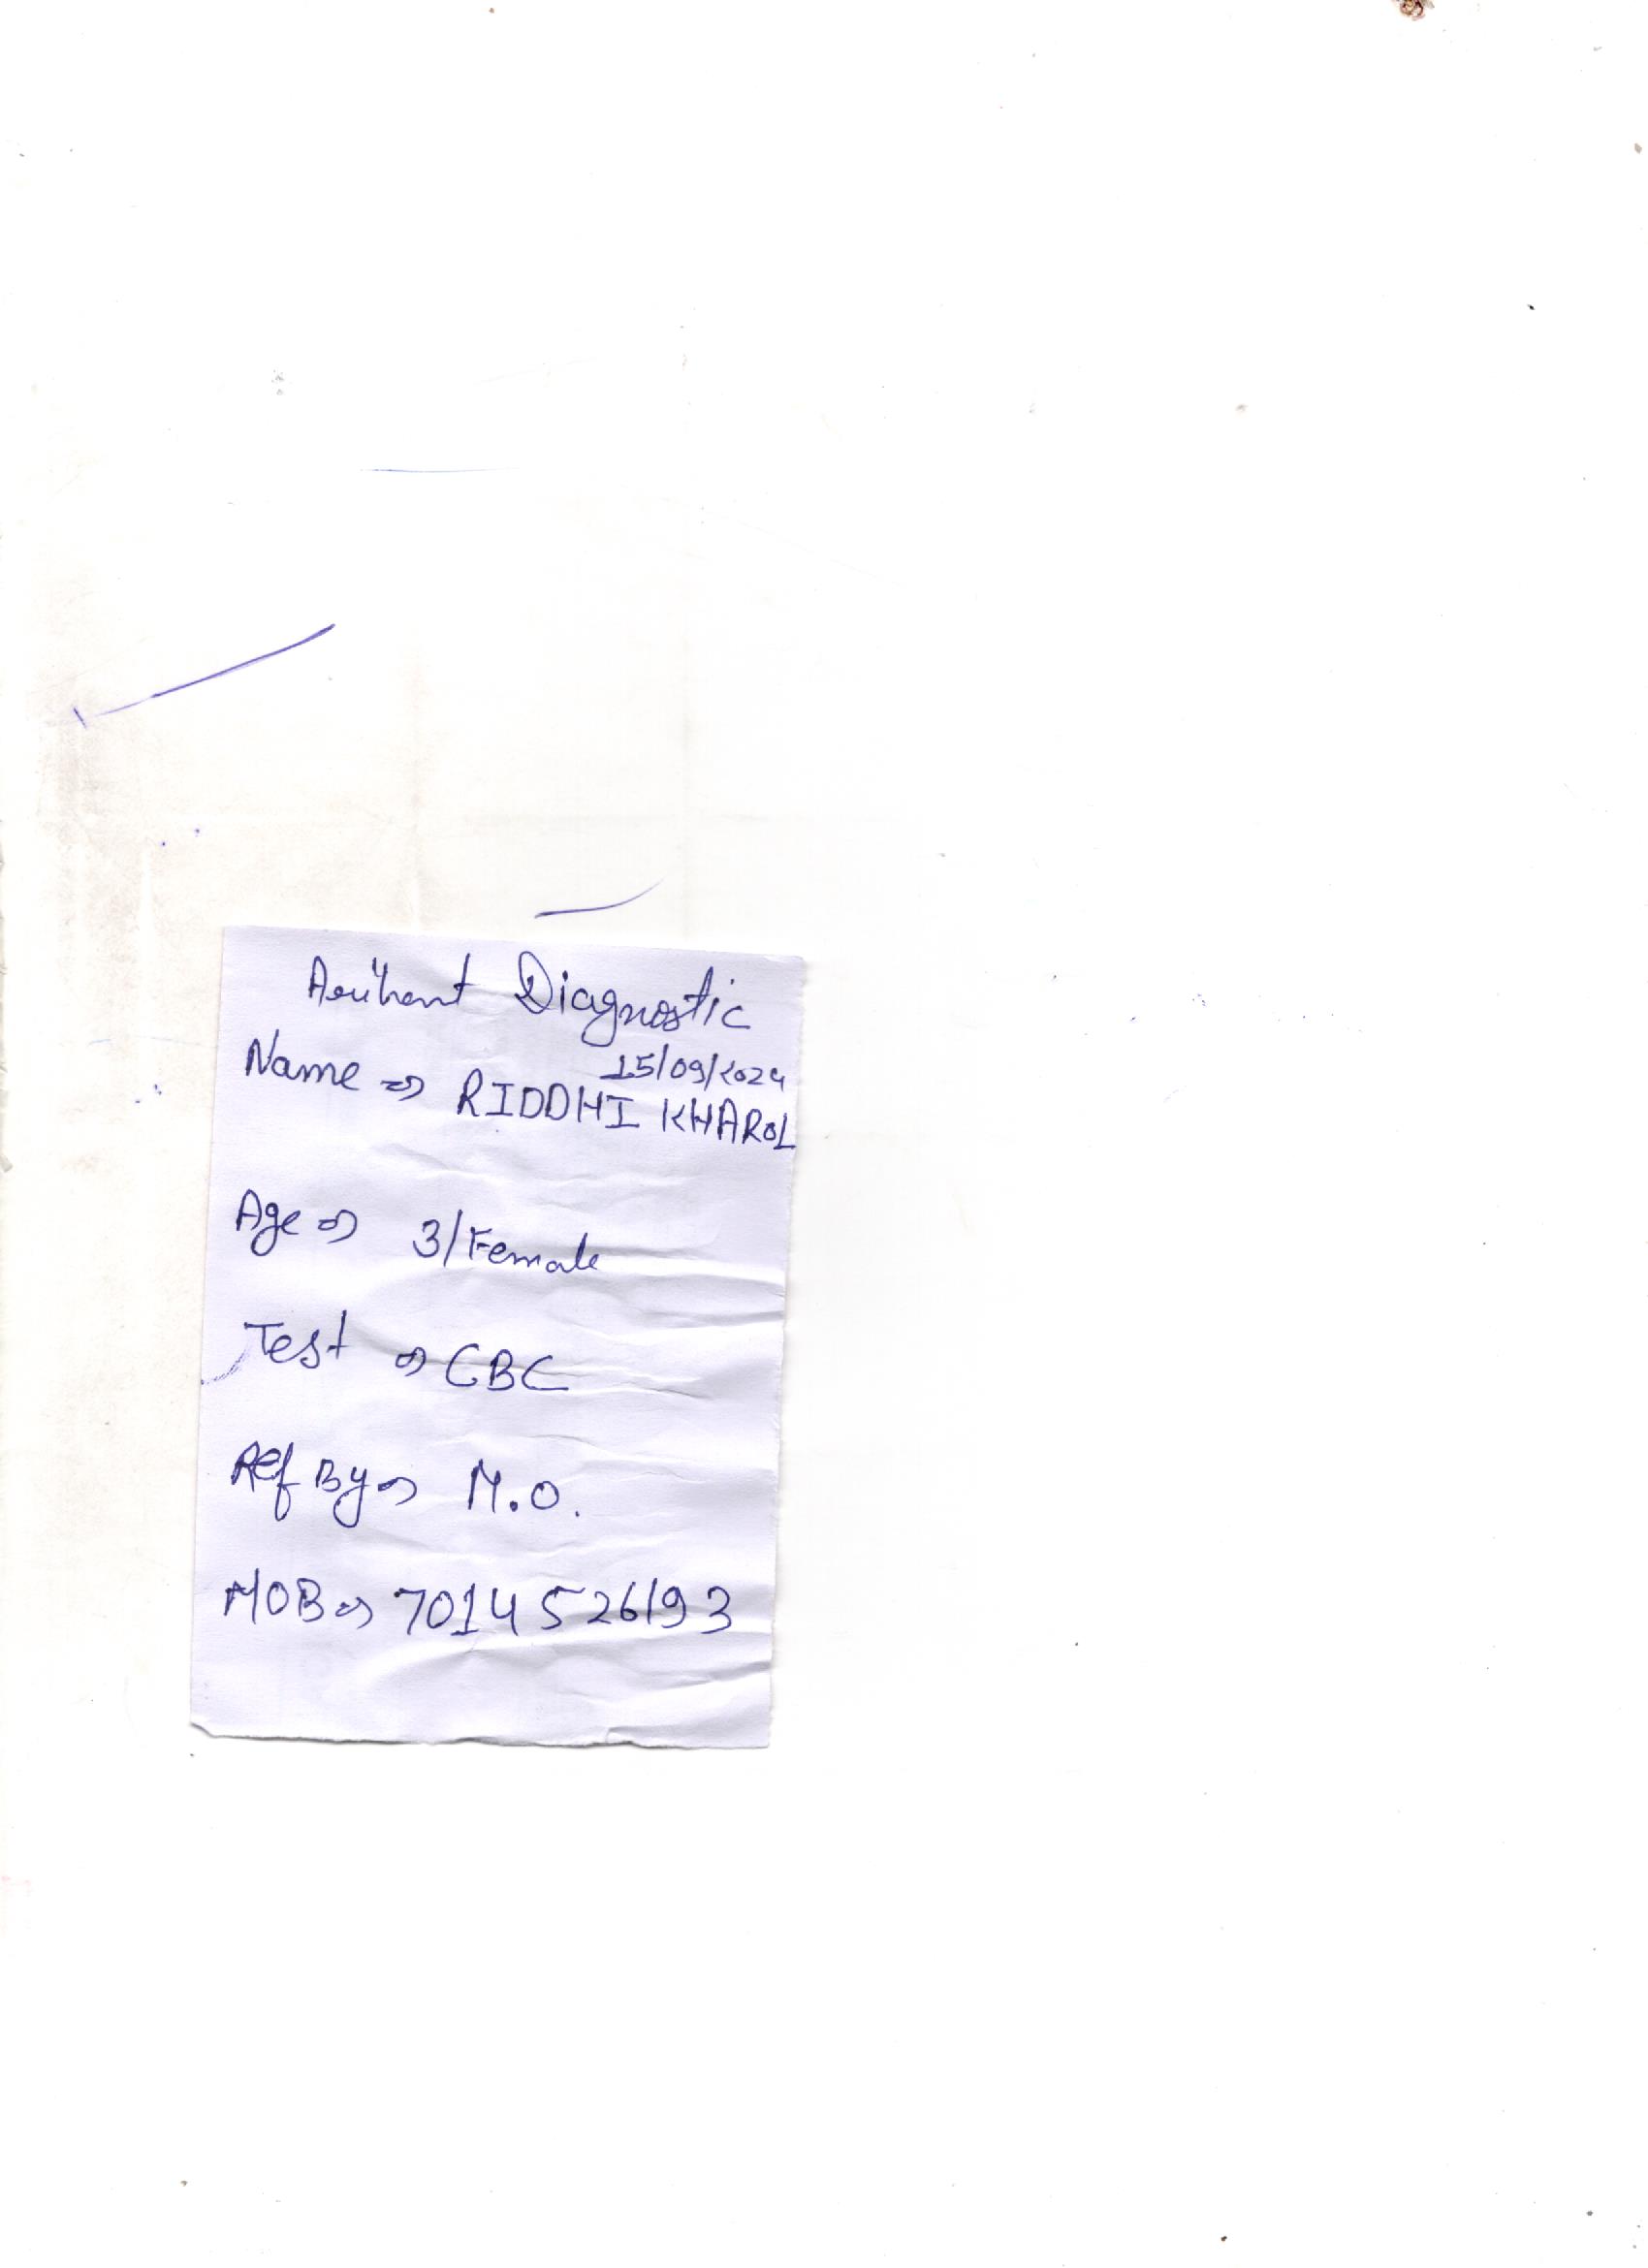 Arihant Diagnostic
15/09/2024
Name ⇒ RIDDHI KHAROL
Age ⇒ 3/Female
Test ⇒ CBC
Ref By ⇒ M.O.
MOB ⇒ 7014526193